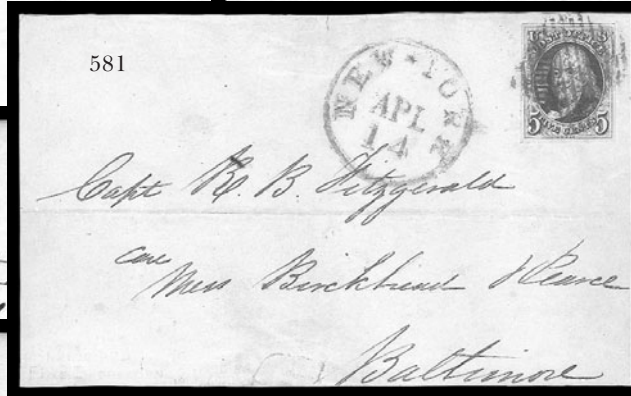 581
NEW-YORK
APL
14
POST OFFICE
5 FIVE CENTS 5
Capt R. B. Fitzgerald
care
Mess Birckhead & Pearce
Baltimore